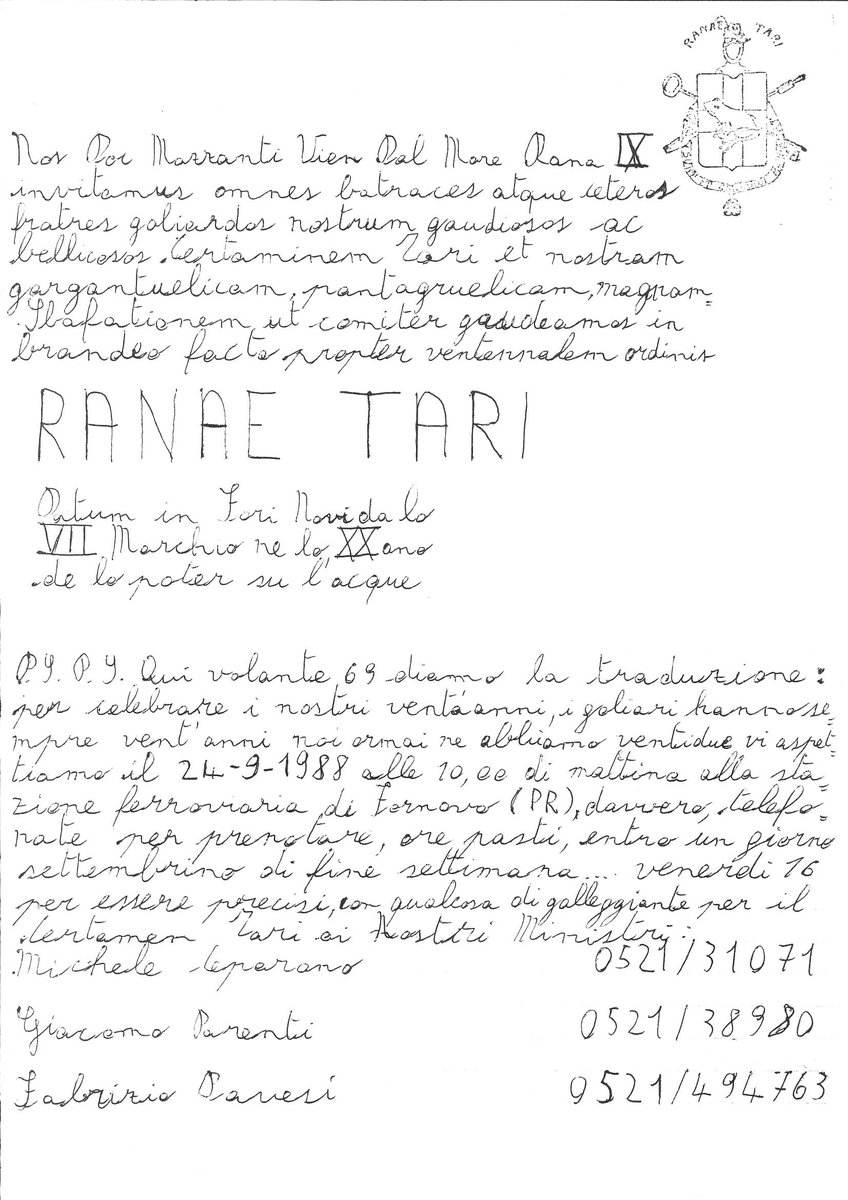 RANAE TARI
Nos Doc Mazzanti Vien Dal Mare Rana IX
invitamus omnes batraces atque ceteros
fratres goliardos nostrum gaudiosos ac
bellicosos Certaminem Tari et nostram
gargantuelicam, pantagruelicam, magnam=
Sbafationem ut comiter gaudeamos in
brandeo facto propter ventennalem ordinis
RANAE TARI
Datum in Fori Novi da lo
VII Marchio ne lo XX ano
de lo poter su l'acque
P.S. P.S. Qui volante 69 diamo la traduzione:
per celebrare i nostri vent'anni, i goliari hanno se=
mpre vent'anni noi ormai ne abbiamo ventidue, vi aspet=
tiamo il 24-9-1988 alle 10,00 di mattina alla sta=
zione ferroviaria di Fornovo (PR), davvero, telefo=
nate per prenotare, ore pasti, entro un giorno
settembrino di fine settimana... venerdi 16
per essere precisi, con qualcosa di galleggiante per il
Certamen Tari ai Nostri Ministri:
Michele Ceparano 0521/31071
Giacomo Parenti 0521/38980
Fabrizio Pavesi 0521/494763